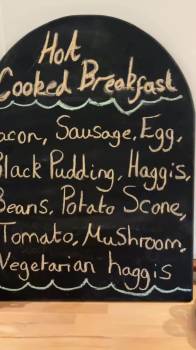 Hot
Cooked Breakfast
acon, Sausage, Egg,
Black Pudding, Haggis,
Beans, Potato Scone,
Tomato, Mushroom,
Vegetarian haggis